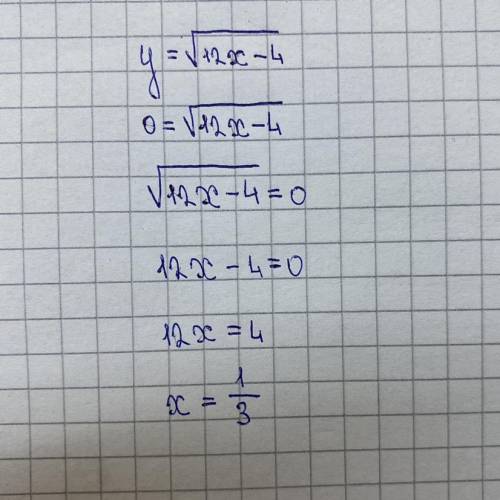 y = √12x - 4
0 = √12x - 4
√12x - 4 = 0
12x - 4 = 0
12x = 4
x = 1/3